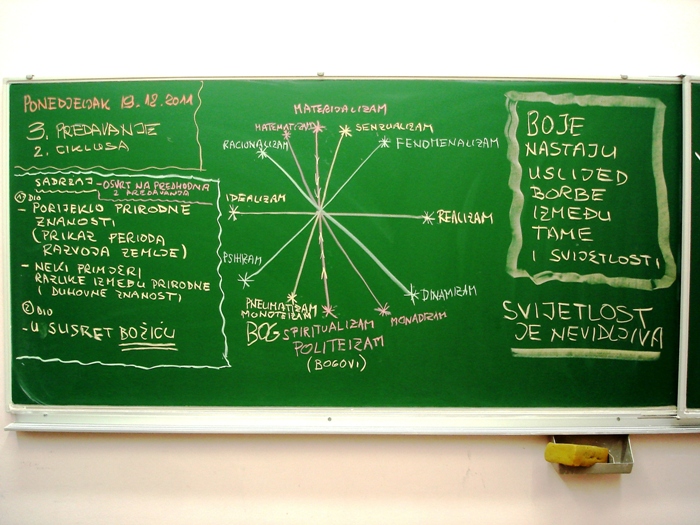 PONEDJELJAK 19.12.2011
3. PREDAVANJE
2. CIKLUSA
SADRŽAJ - OSVRT NA PREDHODNA
2 PREDAVANJA
1 DIO
- PORIJEKLO PRIRODNE
ZNANOSTI
(PRIKAZ PERIODA
RAZVOJA ZEMLJE)
- NEKI PRIMJERI
RAZLIKE IZMEĐU PRIRODNE
I DUHOVNE ZNANOSTI
2 DIO
- U SUSRET BOŽIĆU
MATERIJALIZAM
MATEMATIZAM
SENZUALIZAM
RACIONALIZAM
FENOMENALIZAM
IDEALIZAM
REALIZAM
PSIHIZAM
DINAMIZAM
PNEUMATIZAM
MONOTEIZAM
MONADIZAM
BOG
SPIRITUALIZAM
POLITEIZAM
(BOGOVI)
BOJE
NASTAJU
USLIJED
BORBE
IZMEĐU
TAME
I SVIJETLOSTI
SVIJETLOST
JE NEVIDLJIVA